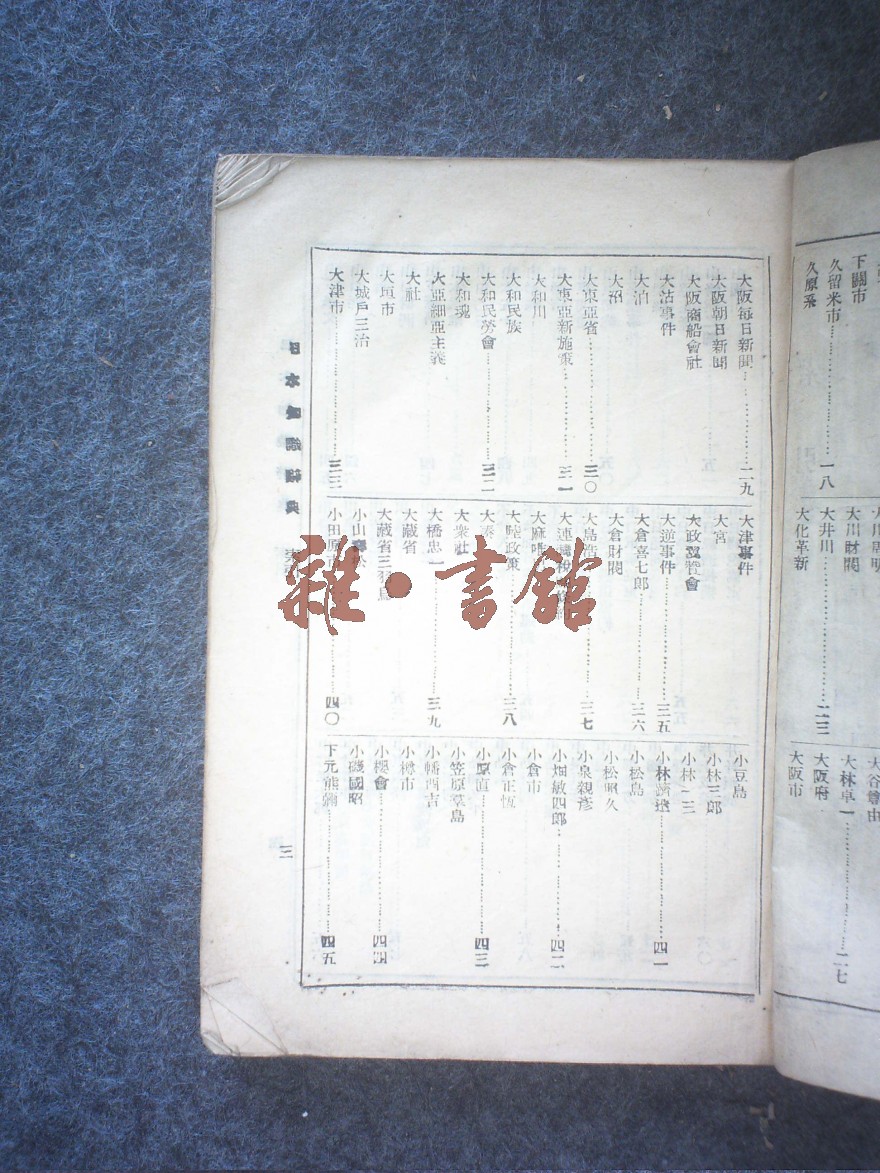 下關市
久留米市⋯⋯一八
久原系
大川周明
大川財閥
大井川⋯⋯二三
大化革新
大林卓一⋯⋯二七
大阪府
大阪市
大阪每日新聞⋯⋯二九
大阪朝日新聞
大阪商船會社
大沽事件
大泊
大沼
大東亞省⋯⋯三〇
大東亞新施策⋯⋯三一
大和川
大和民族
大和民勞會⋯⋯三二
大和魂
大亞細亞主義
大社
大垣市
大城戶三治
大津市⋯⋯三三
大津事件
大宮
大政翼贊會
大逆事件⋯⋯三五
大倉喜七郎⋯⋯三六
大倉財閥
大島浩⋯⋯三七
大連
大麻唯
大陸政策⋯⋯三八
大湊
大衆社
大橋忠一⋯⋯三九
大藏省
大藏省三羽烏
小山
小田原⋯⋯四〇
小豆島
小林三郎
小林一三
小林躋造⋯⋯四一
小松島
小松照久
小泉親彥
小畑敏四郎⋯⋯四二
小倉市
小倉正恆
小原直⋯⋯四三
小笠原羣島
小幡酉吉
小樽市
小櫻會⋯⋯四四
小磯國昭
下元熊彌⋯⋯四五
日本知識辭典
三
雜·書館